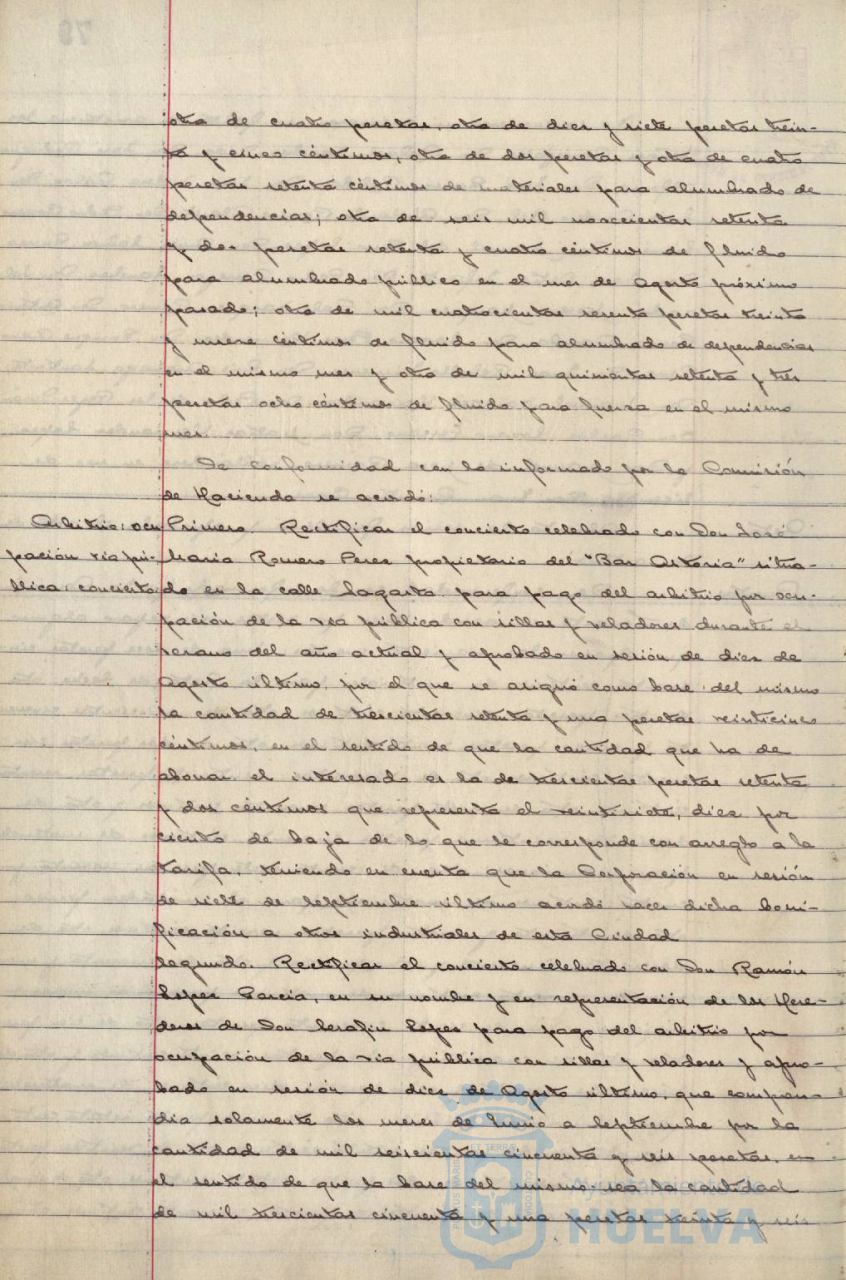 otra de cuatro pesetas, otra de diez y siete pesetas trein-
ta y cinco céntimos, otra de dos pesetas y otra de cuatro
pesetas setenta céntimos de materiales para alumbrado de
dependencias; otra de seis mil novecientas setenta
y dos pesetas setenta y cuatro céntimos de fluido
para alumbrado público en el mes de Agosto próximo
pasado; otra de mil cuatrocientas sesenta pesetas treinta
y nueve céntimos de fluido para alumbrado de dependencias
en el mismo mes y otra de mil quinientas setenta y tres
pesetas ocho céntimos de fluido para fuerza en el mismo
mes.
De conformidad con lo informado por la Comisión
de Hacienda se acordó:
Arbitrio: ocu
pación via pú-
blica: concierto.
Primero. Rectificar el concierto celebrado con Don José
Maria Romero Perez propietario del "Bar Astoria" situa-
do en la calle Sagasta para pago del arbitrio por ocu-
pación de la via pública con sillas y veladores durante el
verano del año actual y aprobado en sesión de diez de
Agosto último, por el que se asignó como base del mismo
la cantidad de trescientas setenta y una pesetas veinticinco
céntimos, en el sentido de que la cantidad que ha de
abonar el interesado es la de trescientas pesetas setenta
y dos céntimos que representa el veintisiete, diez por
ciento de baja de lo que le corresponde con arreglo a la
tarifa, teniendo en cuenta que la Corporación en sesión
de siete de Septiembre último acordó hacer dicha boni-
ficación a otros industriales de esta Ciudad
Segundo. Rectificar el concierto celebrado con Don Ramón
Lopez Garcia, en su nombre y en representación de los Here-
deros de Don Serafin Lopez para pago del arbitrio por
ocupación de la via pública con sillas y veladores y apro-
bado en sesión de diez de Agosto último, que compren-
dia solamente los meses de Junio a Septiembre por la
cantidad de mil seiscientas cincuenta y seis pesetas, en
el sentido de que la base del mismo sea la cantidad
de mil trescientas cincuenta y una pesetas treinta y seis
HUELVA